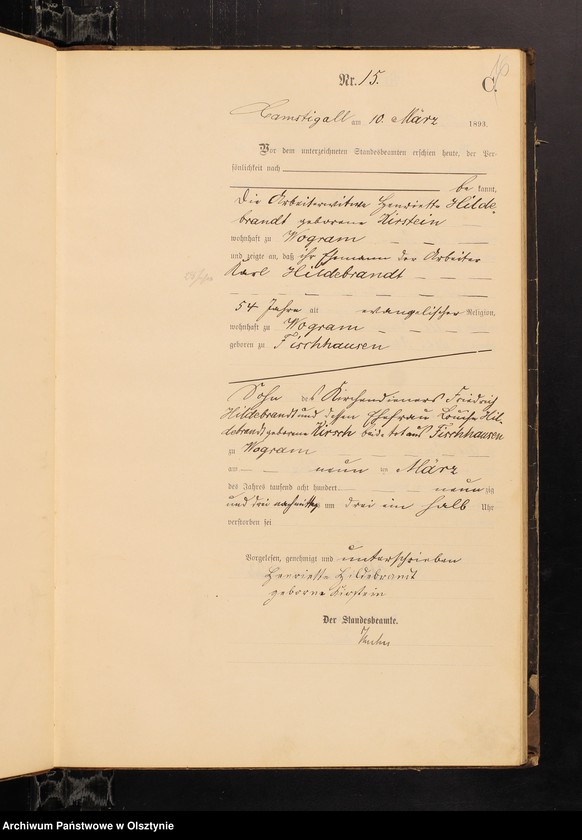 Nr. 15.
C.
Camstigall am 10. März 1893.
Vor dem unterzeichneten Standesbeamten erschien heute, der Per-
sönlichkeit nach
be kannt,
die Arbeiterwitwe Henriette Hilde-
brandt geborene Kirstein
wohnhaft zu Wogram
und zeigte an, daß ihr Ehemann der Arbeiter
Karl Hildebrandt
54 Jahre alt evangelischer Religion,
wohnhaft zu Wogram
geboren zu Fischhausen
Sohn des Kirchendieners Friedrich
Hildebrandt und dessen Ehefrau Louise Hil-
debrandt geborene Hirsch beide tot aus Fischhausen
zu Wogram
am neun ten März
des Jahres tausend acht hundert neun zig
und drei nachmittags um drei ein halb Uhr
verstorben sei
Vorgelesen, genehmigt und unterschrieben
Henriette Hildebrandt
geborne Kirstein
Der Standesbeamte.
Archiwum Państwowe w Olsztynie